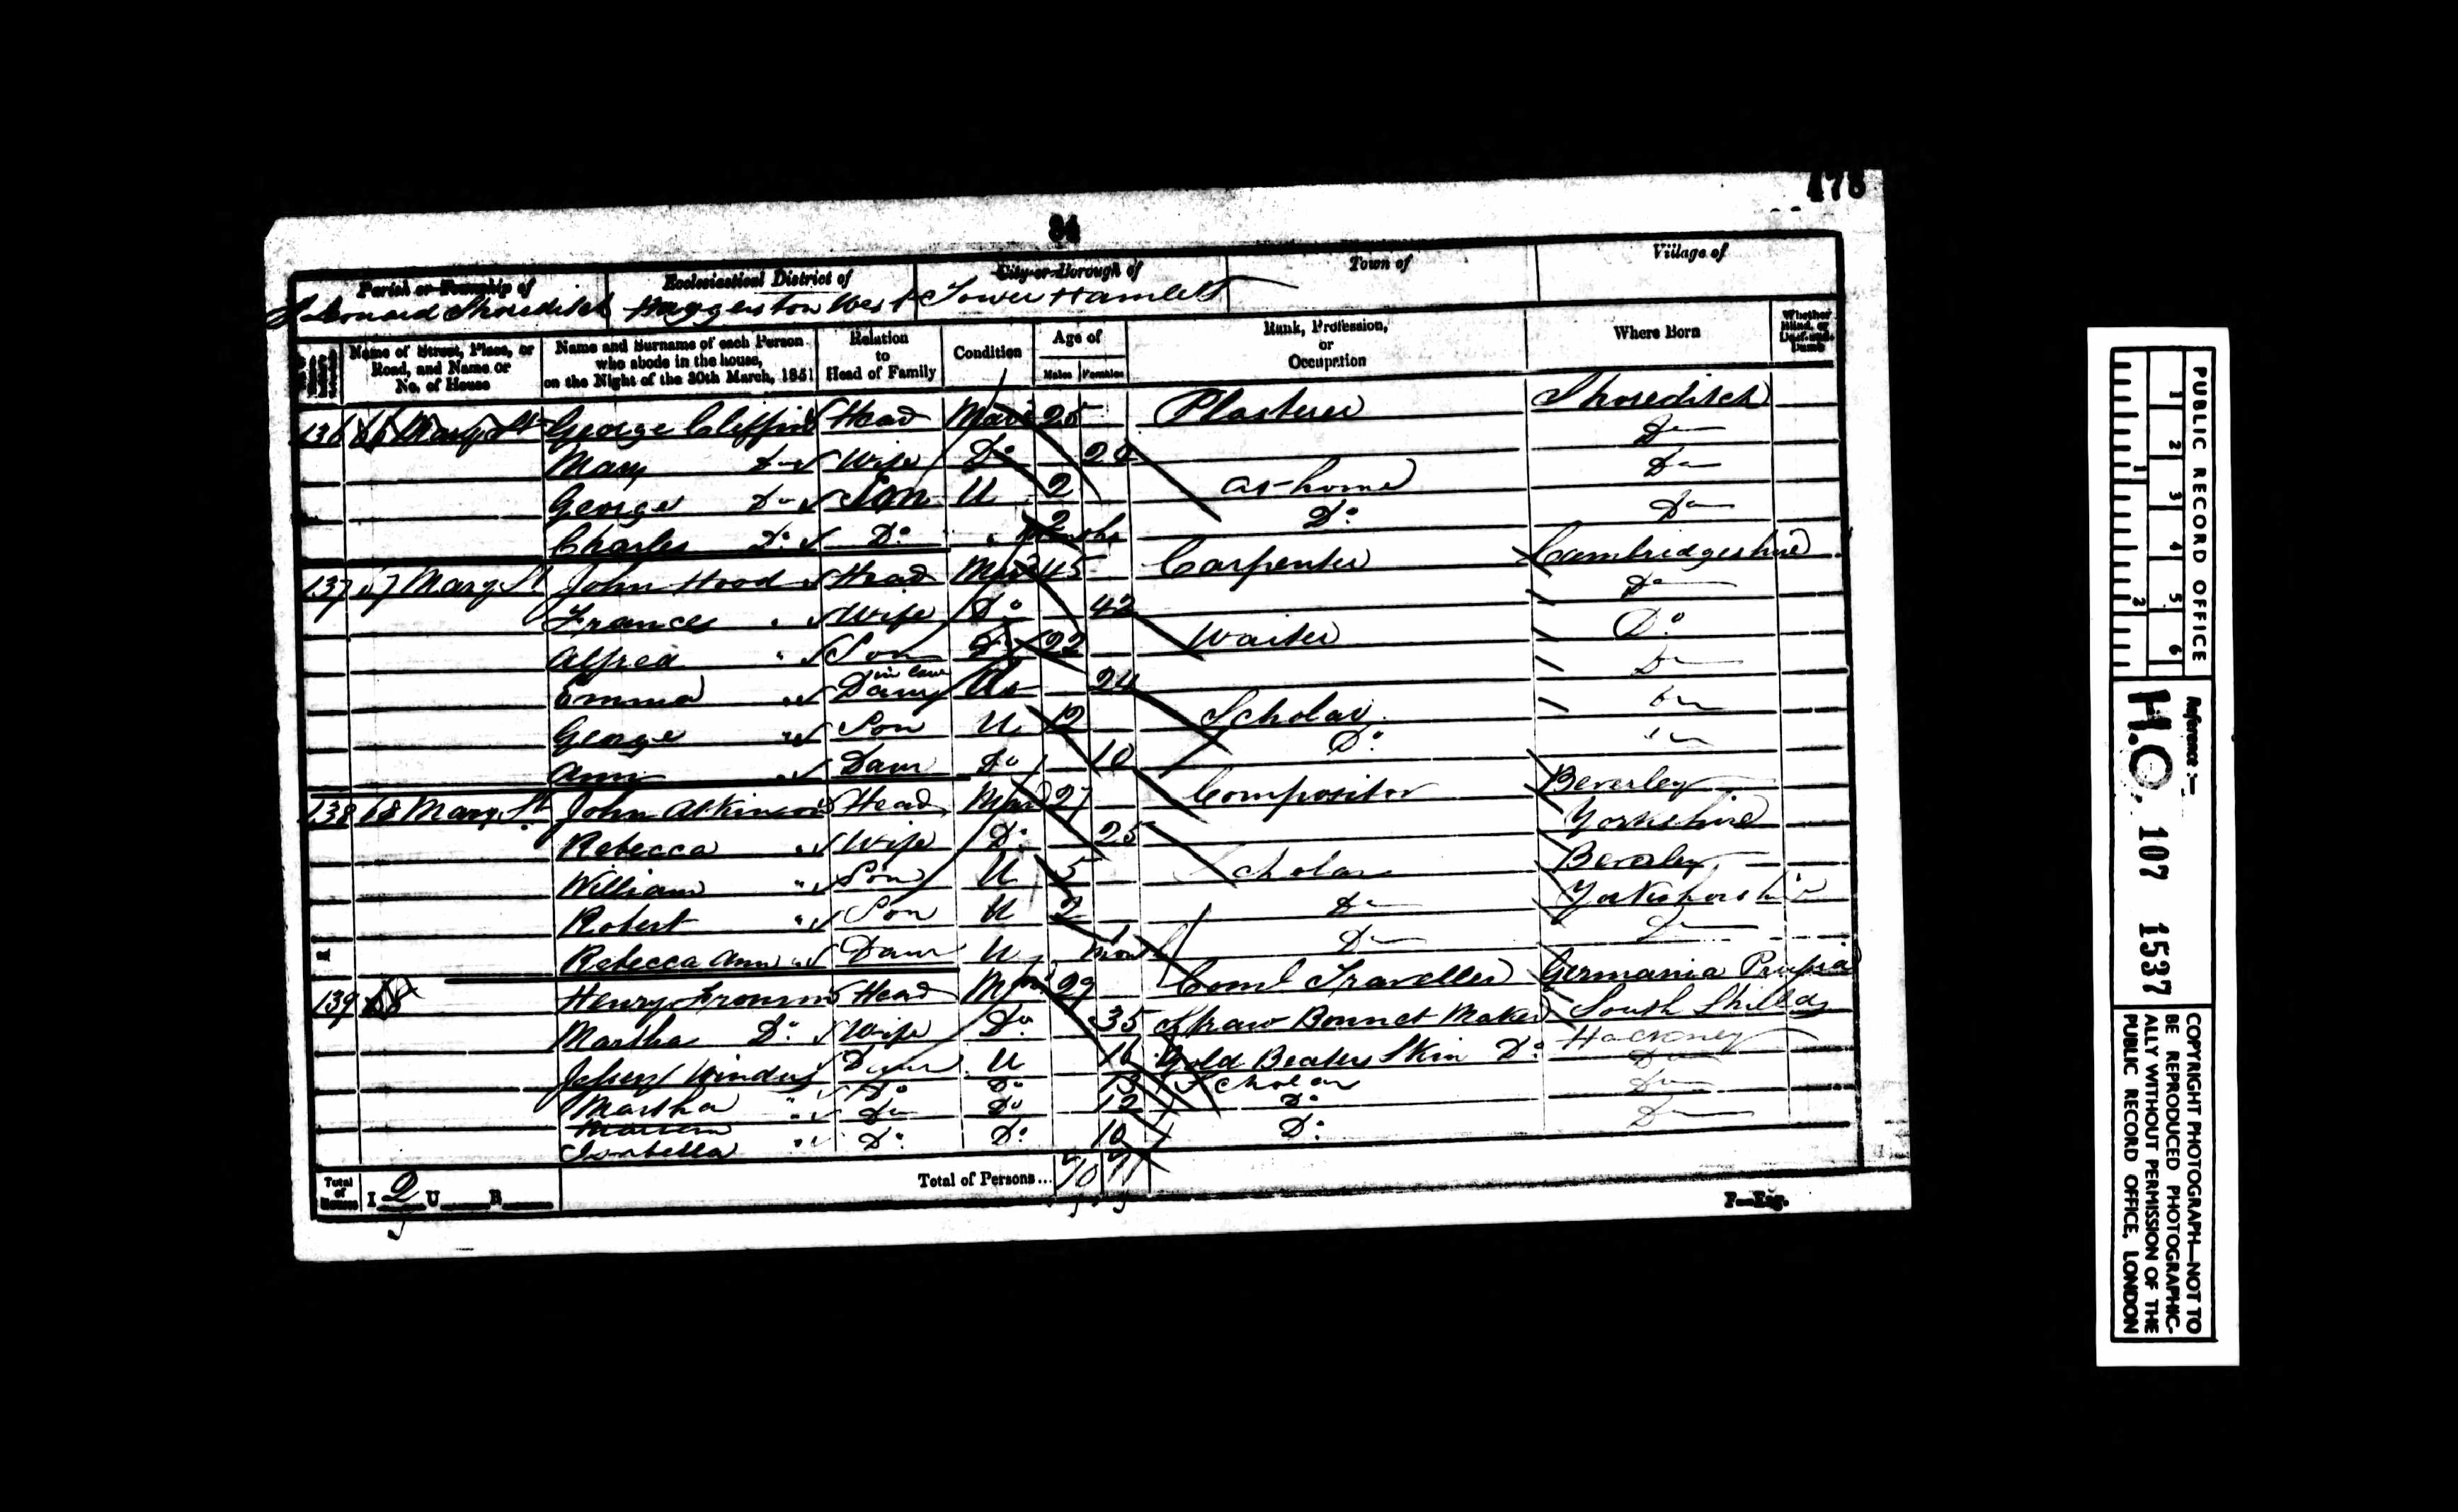 478
34
Parish or Township of Ecclesiastical District of City or Borough of Town of Village of
St Leonard Shoreditch Haggerston West Tower Hamlets
Name of Street, Place, or Road, and Name or No. of House
Name and Surname of each Person who abode in the house, on the Night of the 30th March, 1851
Relation to Head of Family
Condition
Age of
Males Females
Rank, Profession, or Occupation
Where Born
Whether Blind, or Deaf-and-Dumb
136 66 Mary St George Head Mar 25 Plasterer Shoreditch
Mary Do Wife Do Do
George Do Son U 2 at home Do
Charles Do Do 2 months Do Do
137 67 Mary St John Hood Head Mar 45 Carpenter Cambridgeshire
Frances " Wife Do 42 Do
Alfred " Son 22 Waiter Do
Emma " Daur in law 24 Do
George " Son U 12 Scholar Do
Ann " Daur Do 10 Do
138 68 Mary St John Atkinson Head Mar 27 Compositor Beverley
Rebecca " Wife Do 25 Yorkshire
William " Son U 5 Scholar Beverley
Robert " Son U 2 Do
Rebecca Ann " Daur U 1 Month Do Do
139 68 Henry Head Mar 29 Coml Traveller Germania Prussia
Martha Do Wife Do 35 Straw Bonnet Maker South Shields
Windus Daur U 16 Gold Beaters Skin Do Hackney
Martha " Do Do 13 Scholar Do
" Do Do 12 Do Do
Isabella " Do Do 10 Do Do
Total of Houses I 2 U B Total of Persons... 10 11
F—Eng.
PUBLIC RECORD OFFICE
1 2 3 4 5 6
1 2
Reference:—
H.O. 107 1537
COPYRIGHT PHOTOGRAPH—NOT TO
BE REPRODUCED PHOTOGRAPHIC-
ALLY WITHOUT PERMISSION OF THE
PUBLIC RECORD OFFICE, LONDON